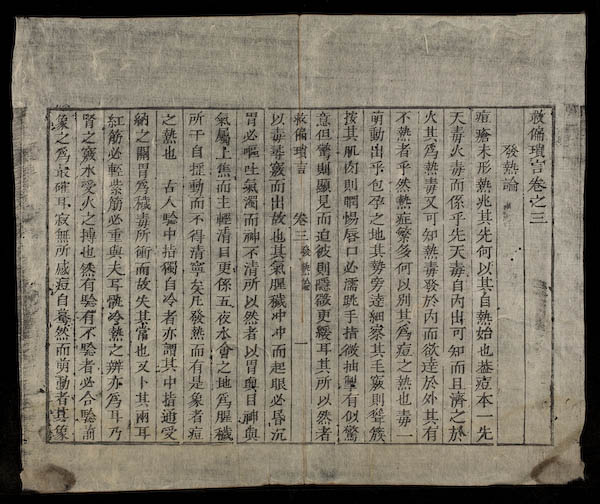 救偏瑣言卷之三
發熱論
痘瘡未形熱兆其先何以其自熱始也葢痘本一先
天毒火毒而係乎先天毒自內出可知而且濟之於
火其為熱毒又可知熱毒發於內而欲達於外其有
不熱者乎然熱症繁多何以別其為痘之熱也毒一
萌動出乎包孕之地其勢旁達細察其毛竅則聳簇
按其肌肉則瞤惕唇口必濡跳手指微抽掣有似驚
意但驚則顯見而迫彼則隱微更緩耳其所以然者
救偏瑣言 卷三 發熱論 一
以毒尋竅而出故也其氣腥穢冲冲而起眼必昏沉
胃必嘔吐氣濁而神不清所以然者以胃與目神與
氣屬上焦而主輕清目更係五夜水會之地為腥穢
所干自搖動而不得清寧矣凡發熱而有是象者痘
之熱也 古人驗中指獨自冷者亦謂其中指通受
納之關胃為穢毒所衝而故失其常也又卜其兩耳
紅筋必輕紫筋必重與夫耳骫冷熱之辨亦為耳乃
腎之竅水受火之摶也然有驗有不驗者必合驗前
象之為最確耳寂無所感痘自驀然而萌動者其象